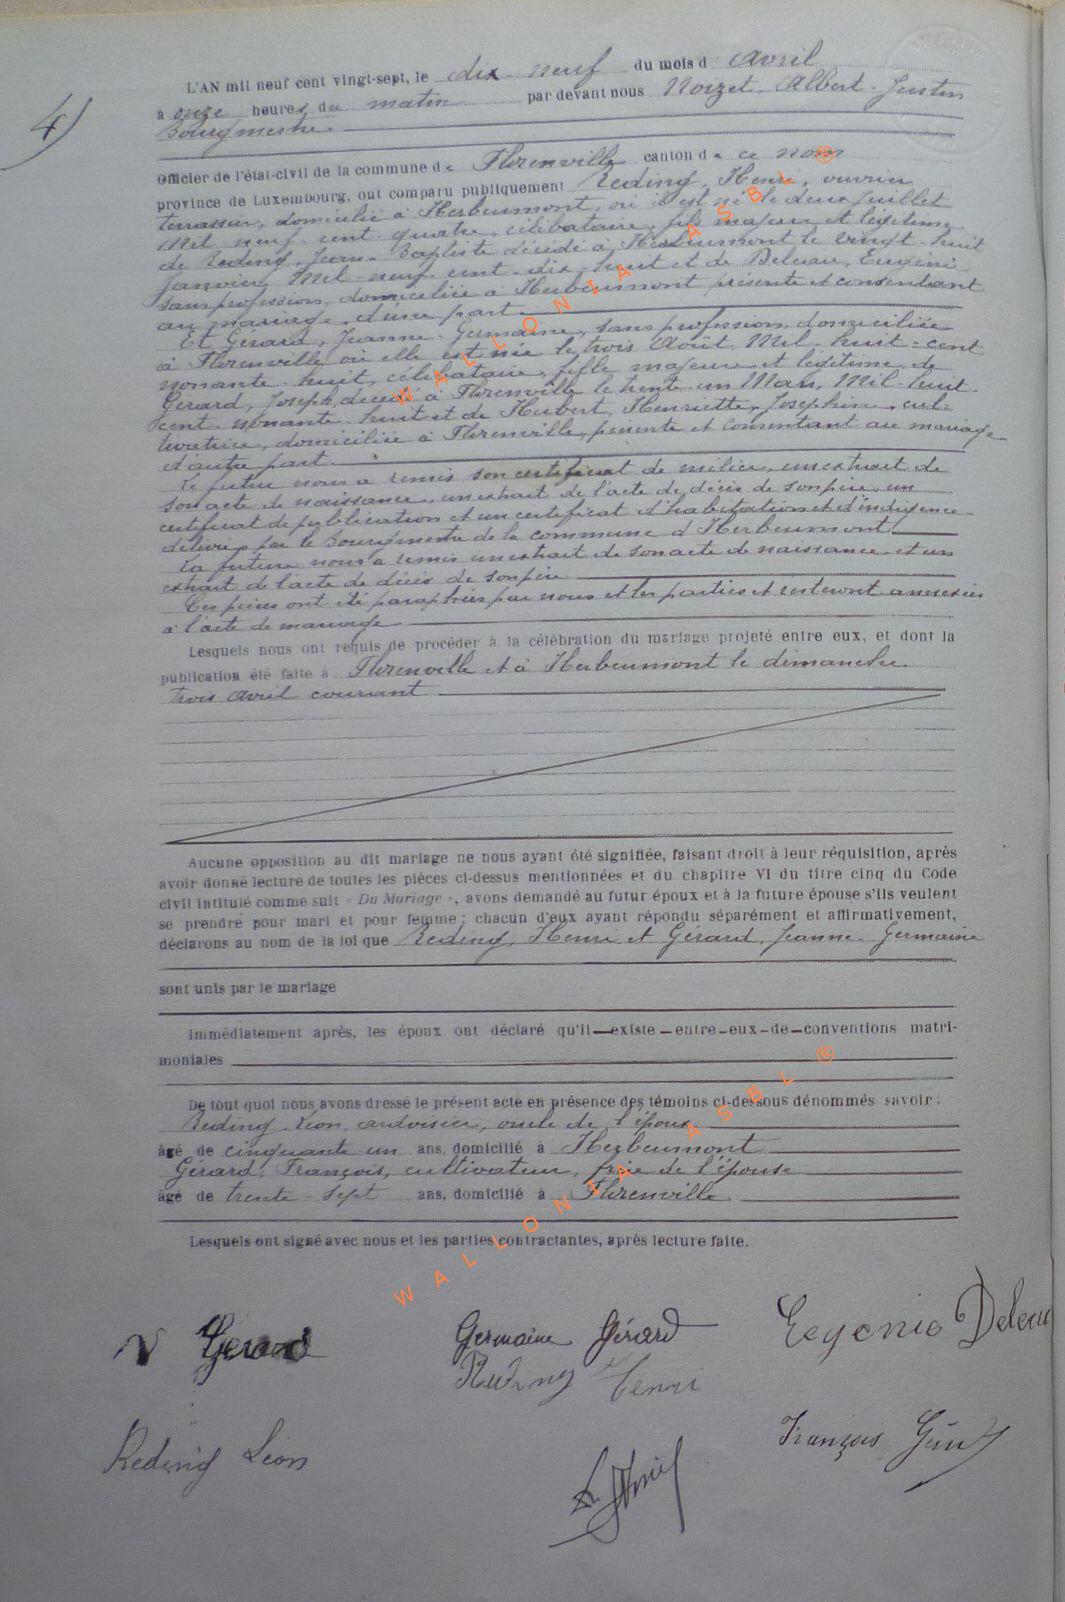 4)
L'AN mil neuf cent vingt-sept, le dix-neuf du mois d'Avril
à onze heures du matin par devant nous Noizet, Albert-Justin
Bourgmestre
Officier de l'état-civil de la commune de Florenville canton de ce nom
province de Luxembourg, ont comparu publiquement Reding, Henri, ouvrier
terrassier, domicilié à Herbeumont, où il est né le deux Juillet
Mil neuf cent quatre, célibataire, fils majeur et légitime
de Reding, Jean-Baptiste décédé à Herbeumont le vingt-huit
janvier Mil-neuf-cent-dix-huit et de Deleau, Eugénie
sans profession, domiciliée à Herbeumont présente et consentant
au mariage, d'une part.
Et Gérard, Jeanne-Germaine, sans profession, domiciliée
à Florenville où elle est née le trois Août Mil-huit-cent
nonante-huit, célibataire, fille majeure et légitime de
Gérard, Joseph, décédé à Florenville le trente-un Mars, Mil-huit
cent-nonante-huit et de Hubert, Henriette, Joséphine, cul-
tivatrice, domiciliée à Florenville, présente et consentant au mariage
d'autre part.
Le futur nous a remis son certificat de milice, un extrait de
son acte de naissance, un extrait de l'acte de décès de son père, un
certificat de publication et un certificat d'habitation et d'indigence
délivrés par le Bourgmestre de la commune d'Herbeumont
La future nous a remis un extrait de son acte de naissance et un
extrait de l'acte de décès de son père
Ces pièces ont été paraphées par nous et les parties et resteront annexées
à l'acte de mariage
Lesquels nous ont requis de procéder à la célébration du mariage projeté entre eux, et dont la
publication été faite à Florenville et à Herbeumont le dimanche
trois avril courant
Aucune opposition au dit mariage ne nous ayant été signifiée, faisant droit à leur réquisition, après
avoir donné lecture de toutes les pièces ci-dessus mentionnées et du chapitre VI du titre cinq du Code
civil intitulé comme suit « Du Mariage », avons demandé au futur époux et à la future épouse s'ils veulent
se prendre pour mari et pour femme ; chacun d'eux ayant répondu séparément et affirmativement,
déclarons au nom de la loi que Reding, Henri et Gérard, Jeanne-Germaine
sont unis par le mariage
Immédiatement après, les époux ont déclaré qu'il existe entre eux de conventions matri-
moniales
De tout quoi nous avons dressé le présent acte en présence des témoins ci-dessous dénommés savoir :
Reding, Léon, ardoisier, oncle de l'époux
âgé de cinquante un ans, domicilié à Herbeumont
Gérard, François, cultivateur, frère de l'épouse
âgé de trente-sept ans, domicilié à Florenville
Lesquels ont signé avec nous et les parties contractantes, après lecture faite.
V Gérard Germaine Gérard Eegenie Deleau
Reding Henri
Reding Léon François Gérard
WALLONIA ASBL ®
WALLONIA ASBL ®